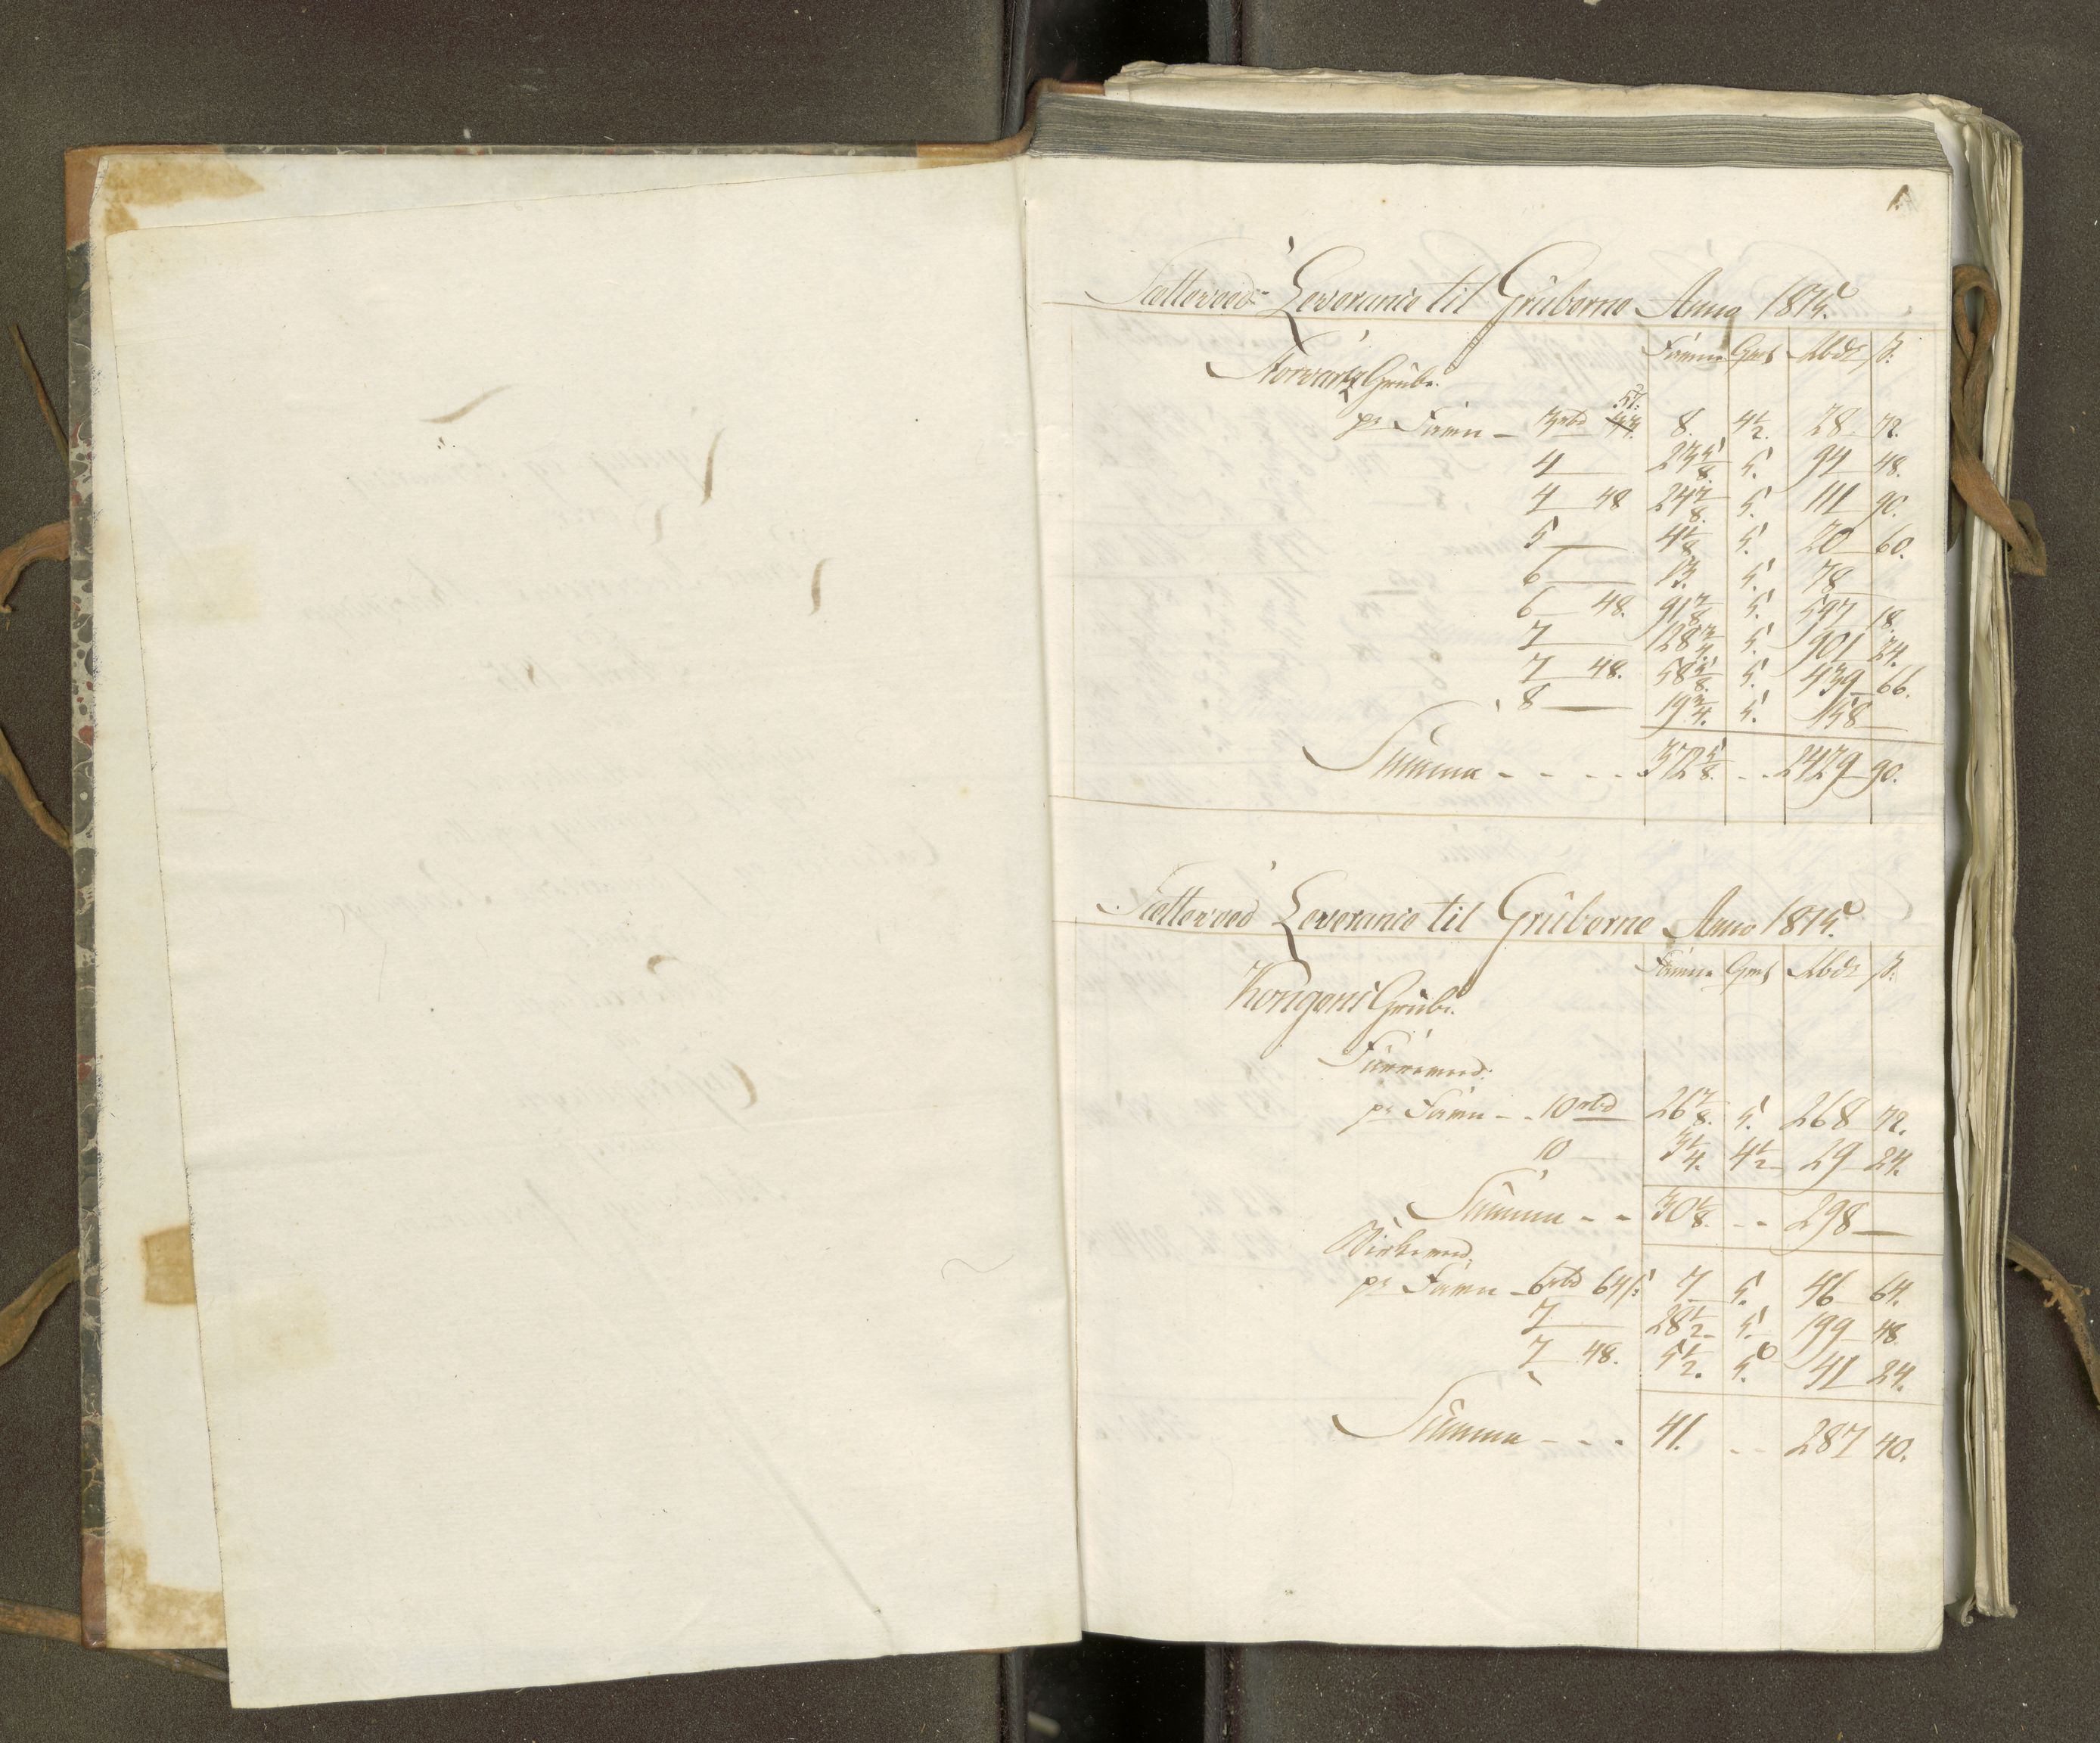 1.
Sætteveed Leverance til Gruberne Anno 1815.
Favne Qvt Rbdr s:
Storvartz Grube.
pr Favn - 3rbd 57: 8. 4 1/2. 28 72.
4 — 23 5/8. 5. 94 48.
4 48 24 7/8. 5. 111 90.
5 — 4 1/8 5. 20 60.
6 — 13. 5. 78 —
6 48. 91 7/8 5. 597 18.
7 — 128 3/4. 5. 901 24.
7 48. 58 5/8. 5. 439 66.
8 — 19 3/4. 5. 158 —
Summa - - - - 372 5/8. - - 2429 90.
Sætteveed Leverance til Gruberne Anno 1815.
Favne Qvt Rbdr s:
Kongens Grube.
Furreveed:
pr Favn - - 10 rbd 26 7/8. 5. 268 72.
10 — 3 1/4. 4 1/2 29 24.
Summa - - 30 1/8. - - 298 —
Birkeveed.
pr Favn - 6rbd 64s: 7 5. 46 64.
7 — 28 1/2 5. 199 48.
7 48. 5 1/2. 5. 41 24.
Summa - - - 41. - - 287 40.